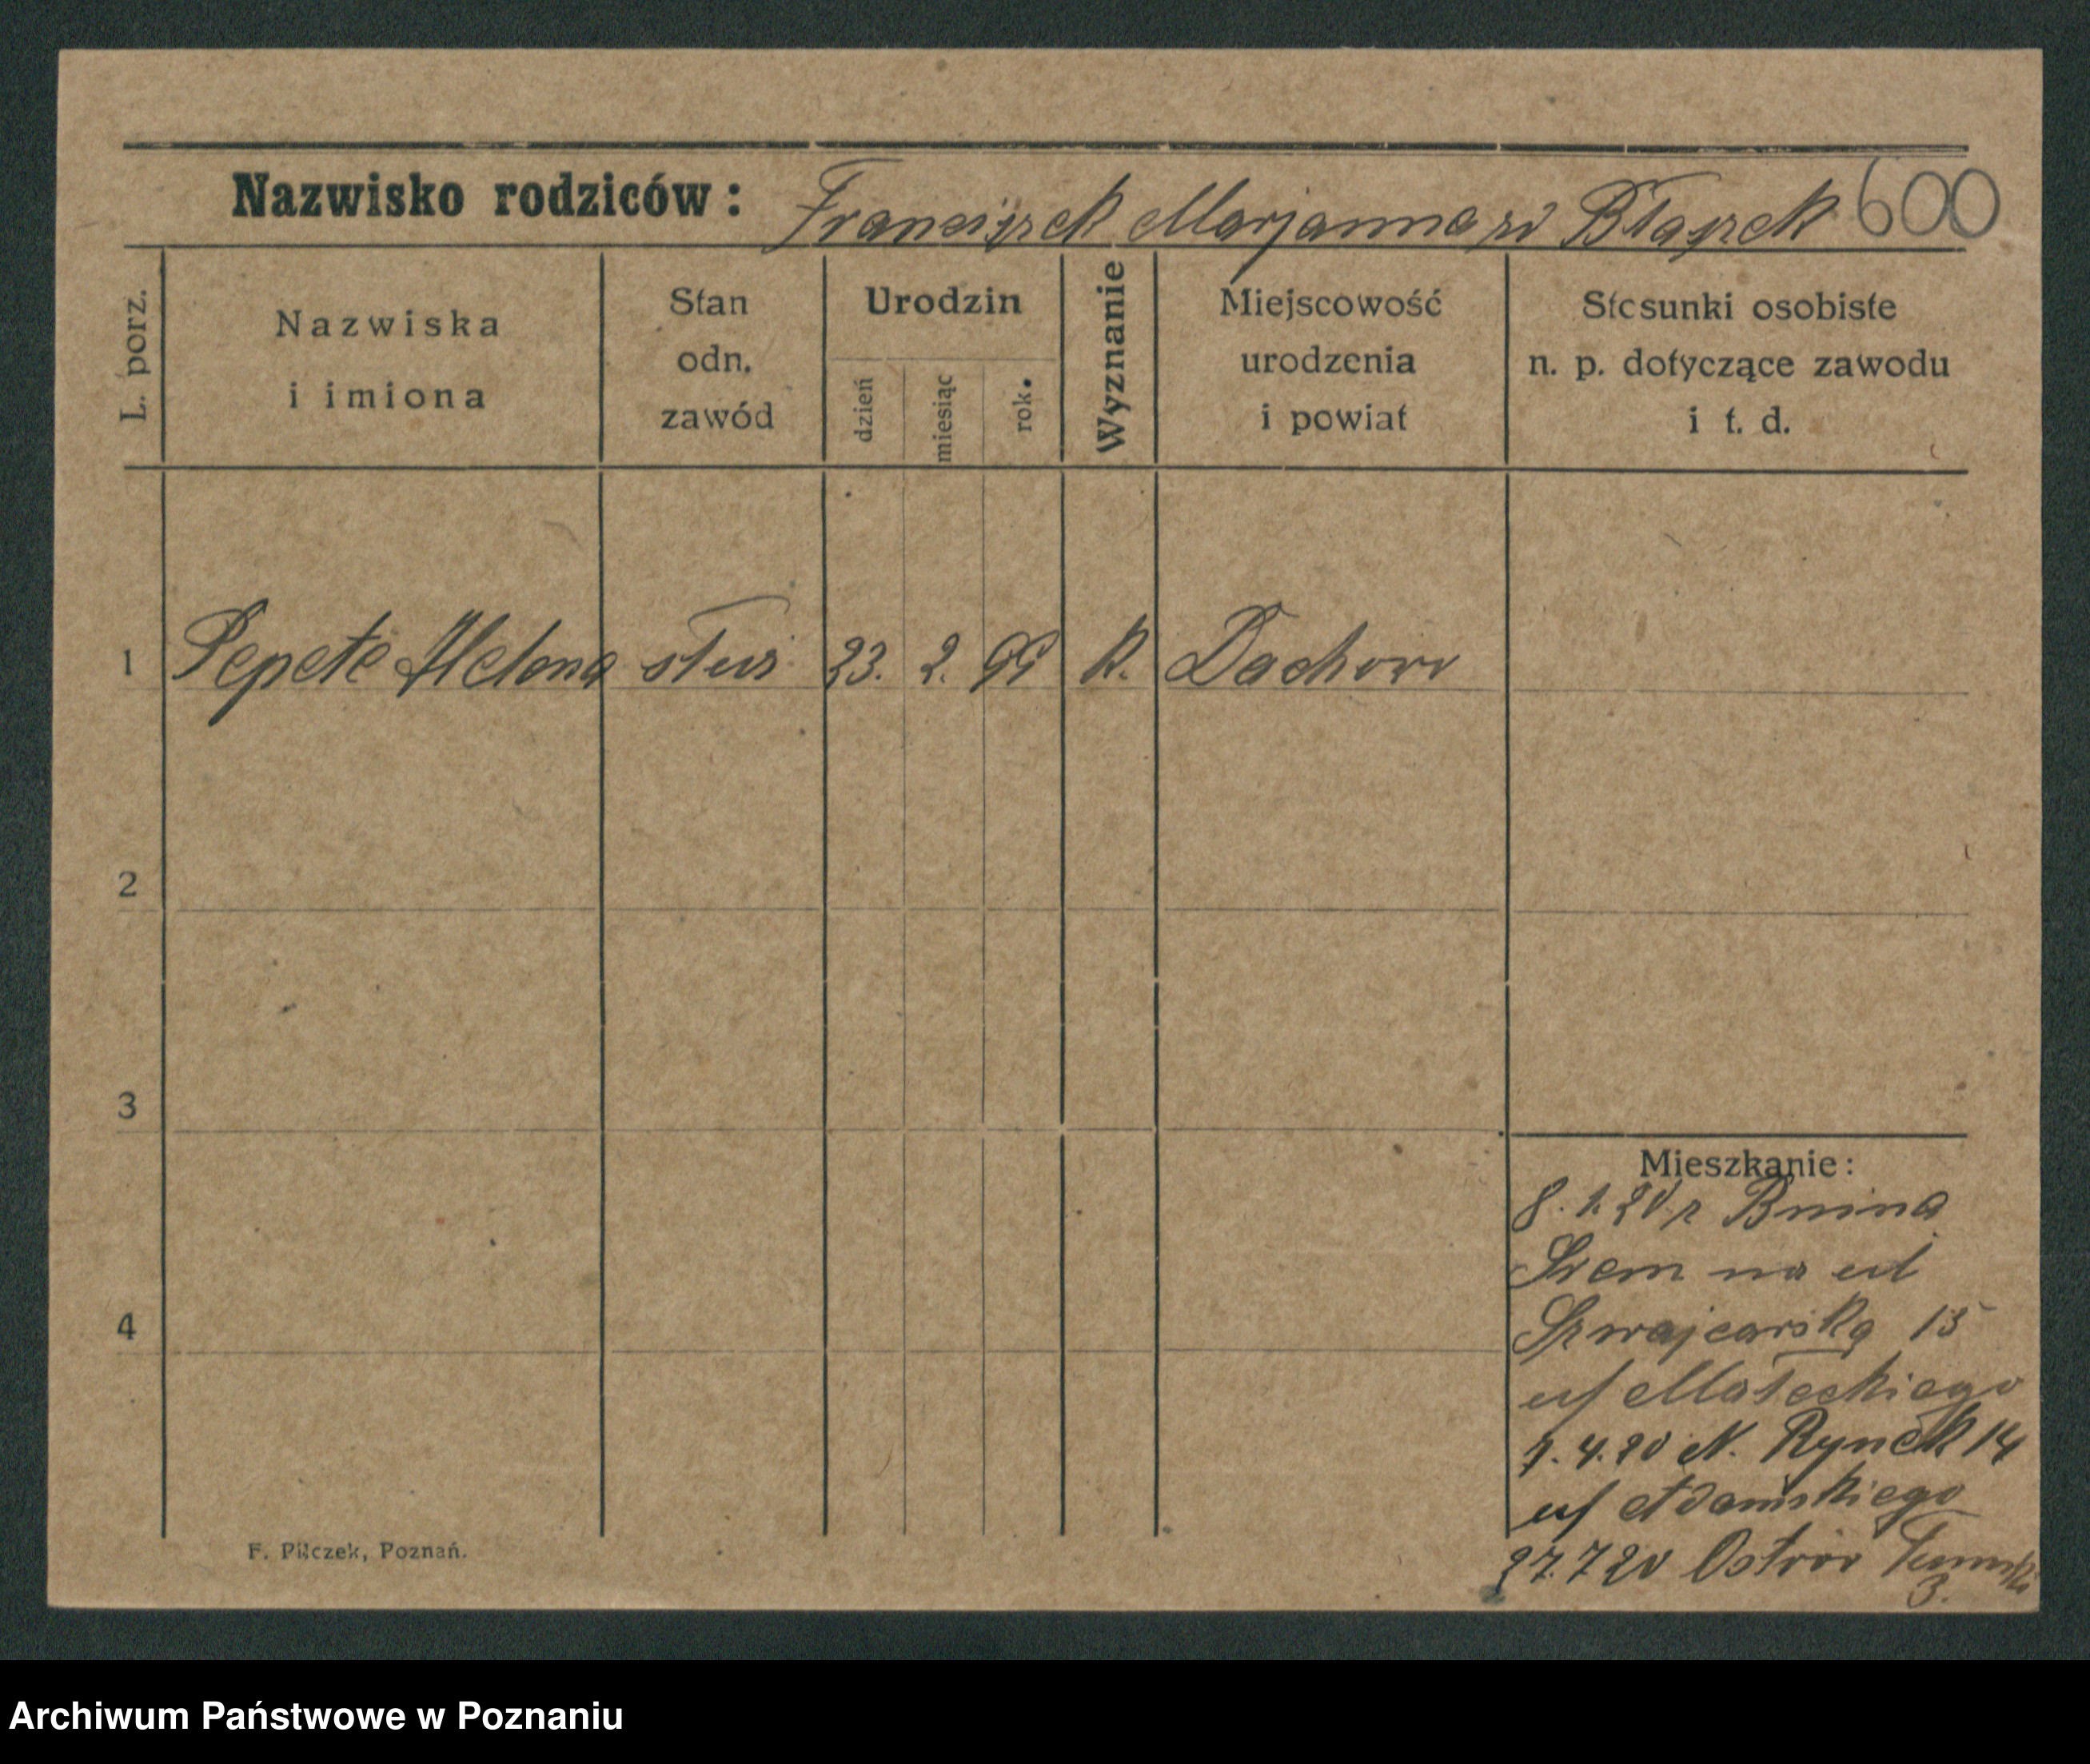 Nazwisko rodziców: Franciszek Marjanna zd Błaszek 600
L. porz.
Nazwiska i imiona
Stan odn. zawód
Urodzin
dzień
miesiąc
rok.
Wyznanie
Miejscowość urodzenia i powiat
Stosunki osobiste n. p. dotyczące zawodu i t. d.
1 Pepete Helena służ 23. 2. 99 k. Dachow
2
3
4
Mieszkanie:
8.1.20 z Bnina
Srem na ul
Szwajcarską 15
u/ Małeckiego
1.4.20 N. Rynek 14
u/ Adamskiego
27.7 20 Ostrów Tumski
3.
F. Pilczek, Poznań.
Archiwum Państwowe w Poznaniu